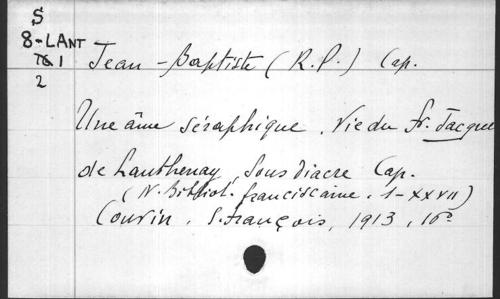 S
8-LANT
TG 1
2
Jean-Baptiste (R.P.) Cap.
Une âme séraphique. Vie du fr. Jacques
de Lanthenay, Sous diacre Cap.
(N. Bibliot. franciscaine. 1-XXVII)
Couvin. S. François, 1913, 16°